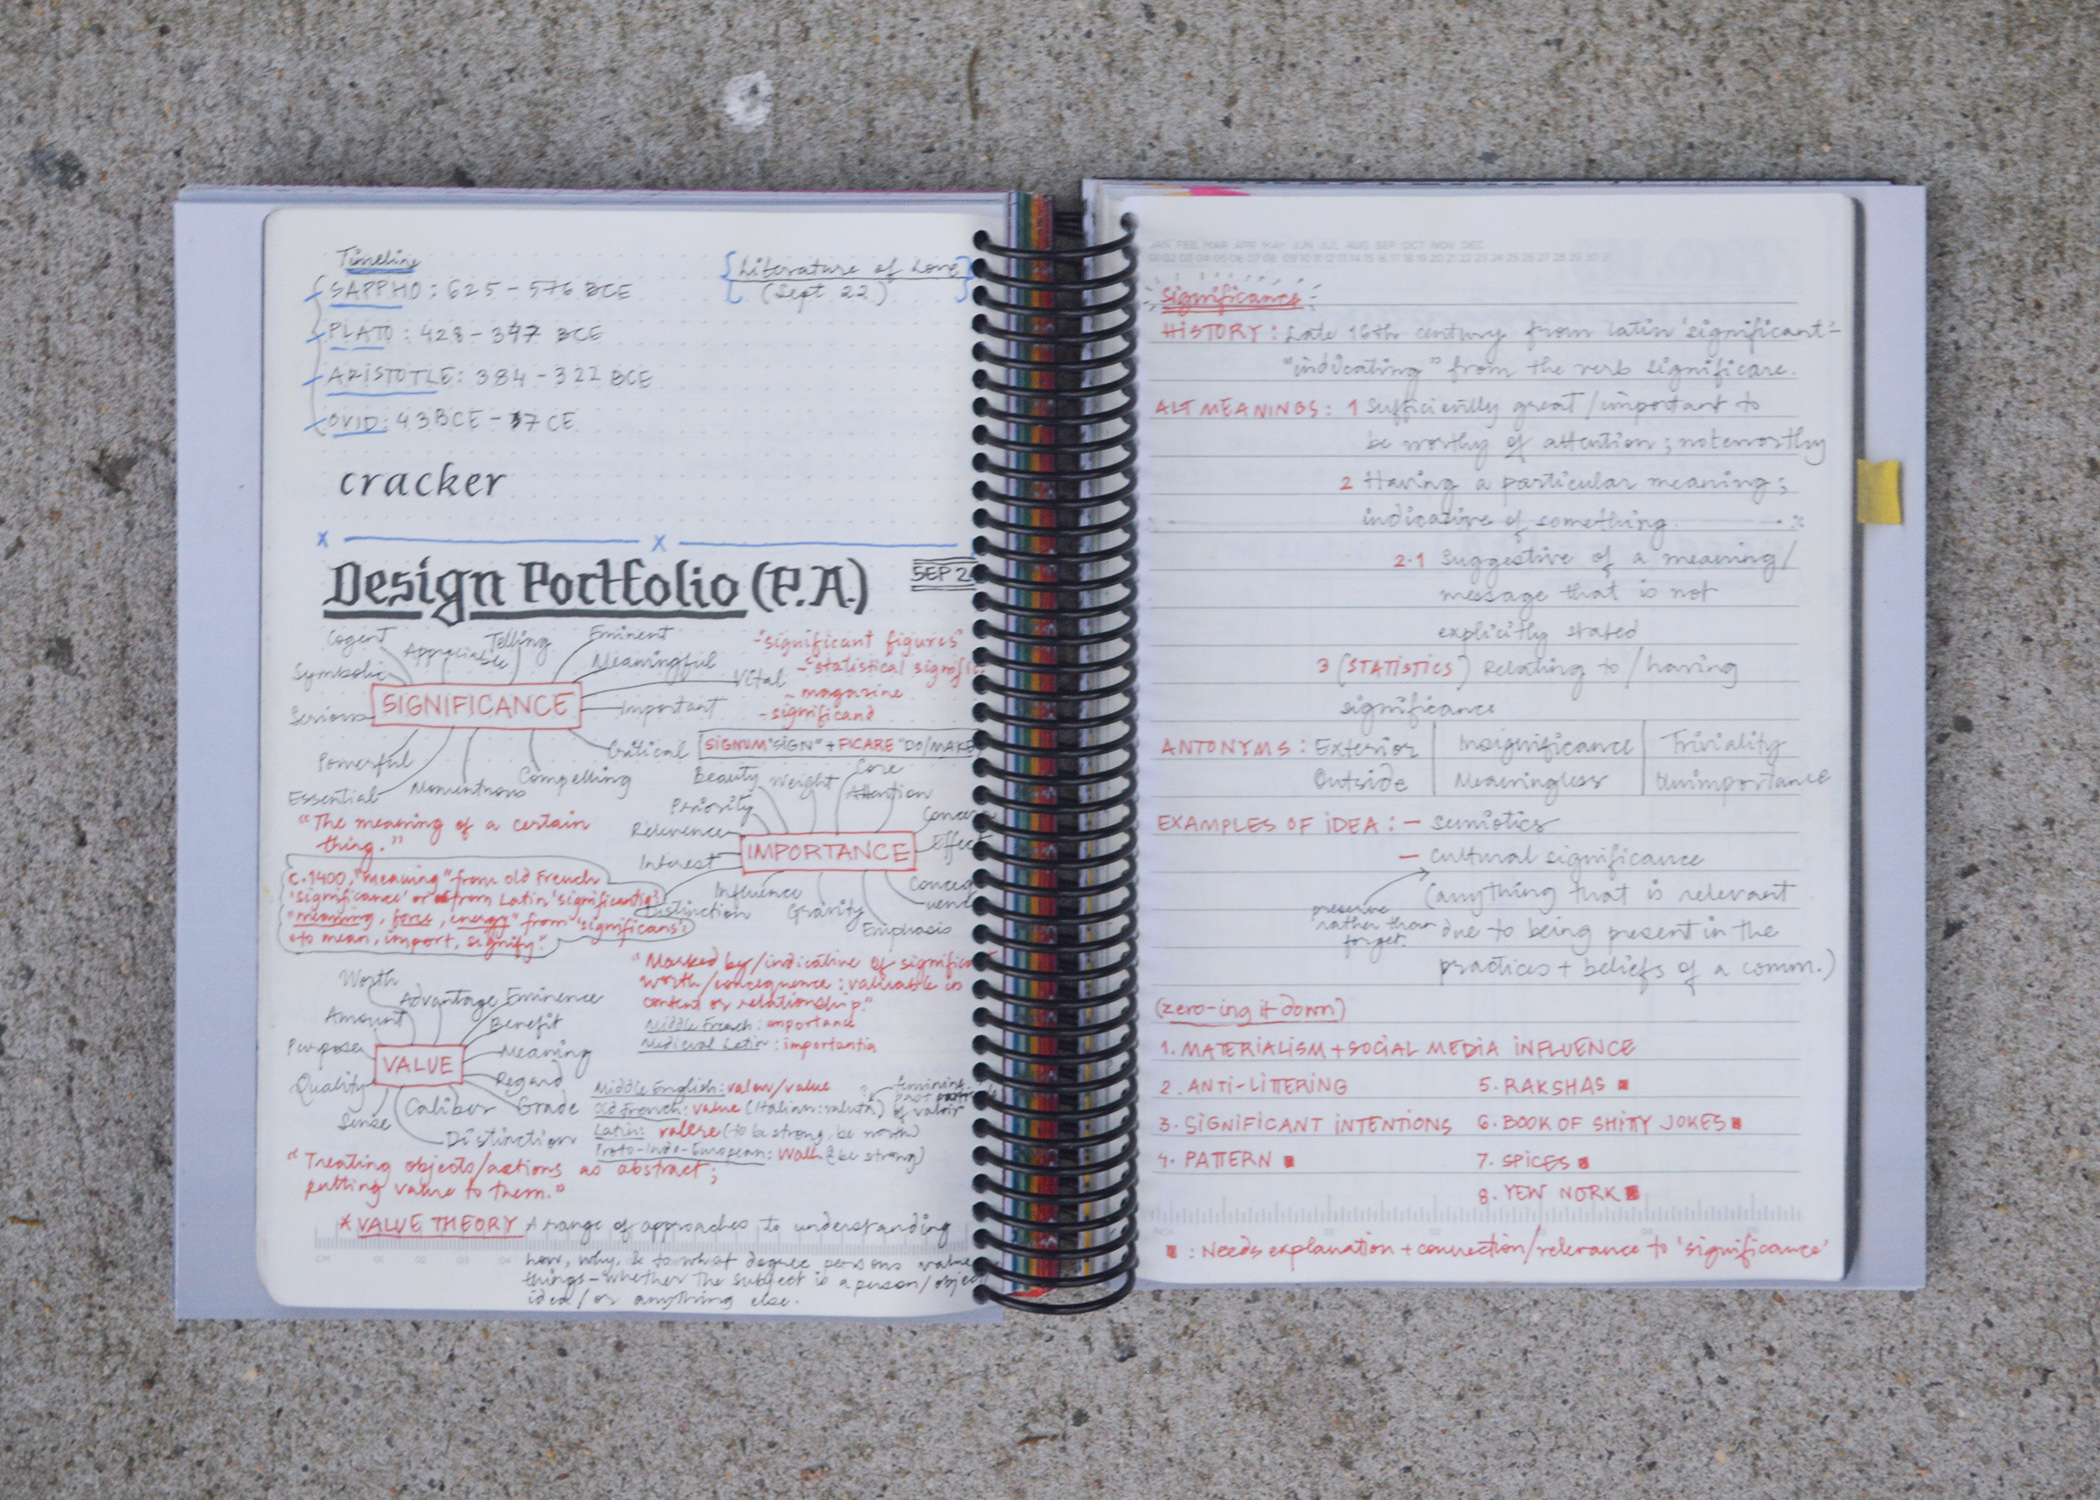 Timeline
SAPPHO: 625 - 576 BCE
PLATO: 428 - 347 BCE
ARISTOTLE: 384 - 322 BCE
OVID: 43 BCE - 17 CE
Literature of Love
(Sept 22)
cracker
x x
Design Portfolio (P.A)
SEP 2
Cogent
Appreciable
Telling
Eminent
Symbolic
Meaningful
Vital
Serious
SIGNIFICANCE
Important
Powerful
Critical
Essential
Momentous
Compelling
- "significant figures"
- "statistical signific
- magazine
- significand
SIGNUM "SIGN" + FICARE "DO/MAKE
"The meaning of a certain
thing."
c.1400, "meaning" from Old French
'significance' or from Latin 'significantia'
"meaning, force, energy" from 'significans'
to mean, import, signify."
Beauty
Weight
Core
Priority
Attention
Relevence
Concern
IMPORTANCE
Effect
Interest
Influence
Distinction
Gravity
Emphasis
Conseq
uence
"Marked by/indicative of significa
worth/consequence: valuable in
content or relationship."
Middle French: importance
Medieval Latin: importantia
Worth
Advantage
Eminence
Amount
Benefit
Purpose
VALUE
Meaning
Quality
Regard
Sense
Caliber
Grade
Distinction
Middle English: valew/value
Old French: value (Italian: valuta)
feminine
past
of valoir
Latin: valere (to be strong, be worth)
Proto-Indo-European: walh (be strong)
"Treating objects/actions as abstract;
putting value to them."
* VALUE THEORY A range of approaches to understanding
how, why, & to what degree persons value
things - whether the subject is a person/object
idea/or anything else.
JAN FEB MAR APR MAY JUN JUL AUG SEP OCT NOV DEC
01 02 03 04 05 06 07 08 09 10 11 12 13 14 15 16 17 18 19 20 21 22 23 24 25 26 27 28 29 30 31
Significance
HISTORY: Late 16th century from latin 'significant-'
"indicating" from the verb significare.
ALT MEANINGS: 1 Sufficiently great/important to
be worthy of attention; noteworthy
2 Having a particular meaning;
indicative of something.
2.1 Suggestive of a meaning/
message that is not
explicitly stated
3 (STATISTICS) Relating to/having
significance
ANTONYMS: Exterior | Insignificance | Triviality
Outside | Meaningless | Unimportance
EXAMPLES OF IDEA: - semiotics
- cultural significance
(anything that is relevant
preserve
rather than
forget.
due to being present in the
practices + beliefs of a comm.)
(zero-ing it down)
1. MATERIALISM + SOCIAL MEDIA INFLUENCE
2. ANTI-LITTERING
3. SIGNIFICANT INTENTIONS
4. PATTERN
5. RAKSHAS
6. BOOK OF SHITTY JOKES
7. SPICES
8. YEW NORK
: Needs explanation + connection/relevance to 'significance'